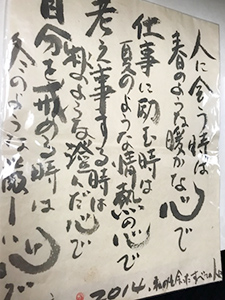 人に会う時は
春のような暖かな心で
仕事に励む時は
夏のような情熱の心で
考え事する時は
秋ような澄んだ心で
自分を戒める時は
冬のような厳しい心で
2014.